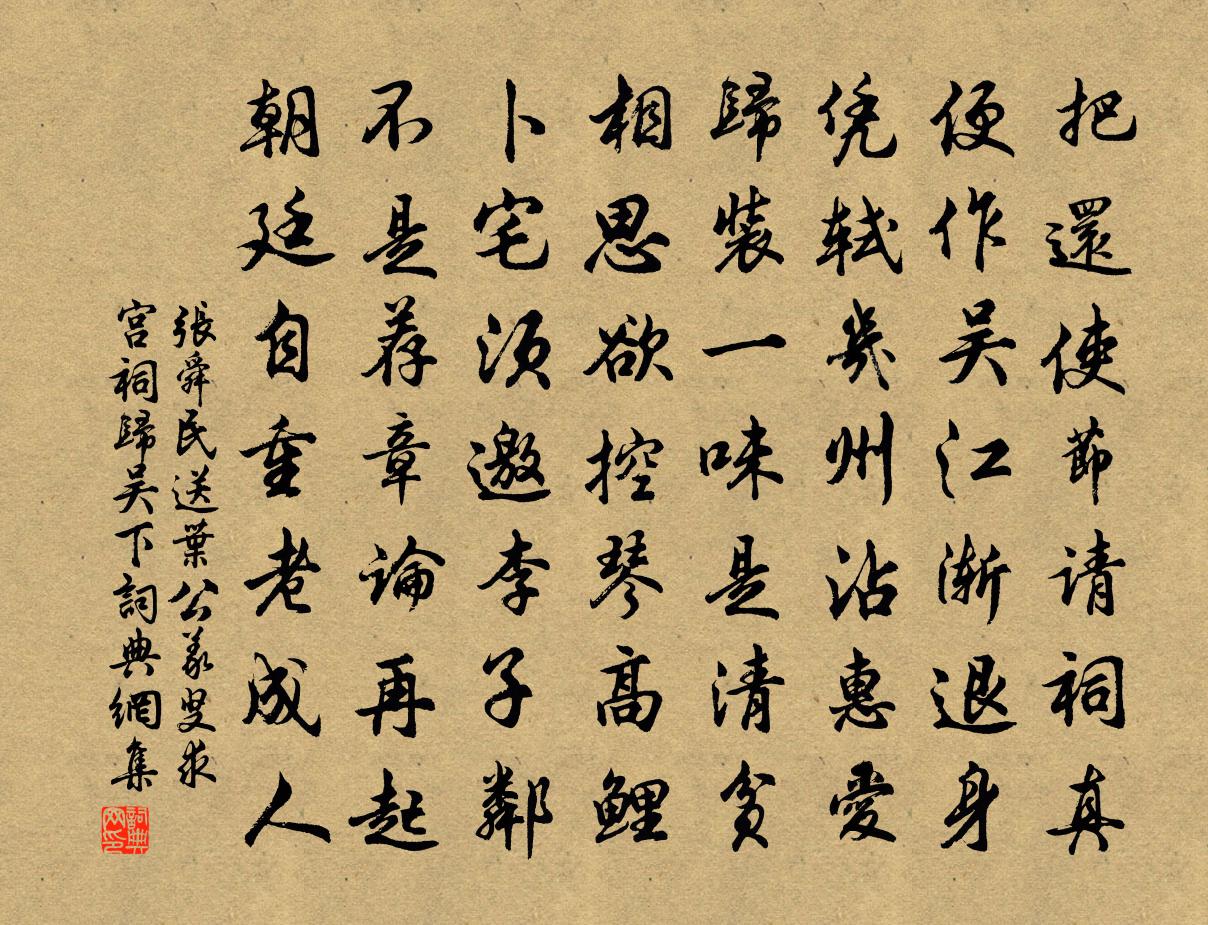 把還使節请祠真
便作吴江渐退身
凭轼幾州沾惠愛
歸裝一味是清貧
相思欲控琴高鯉
卜宅须邀李子鄰
不是荐章論再起
朝廷自重老成人
張舜民送葉公羲叟求
宫祠歸吴下詞典網集
詞典网印